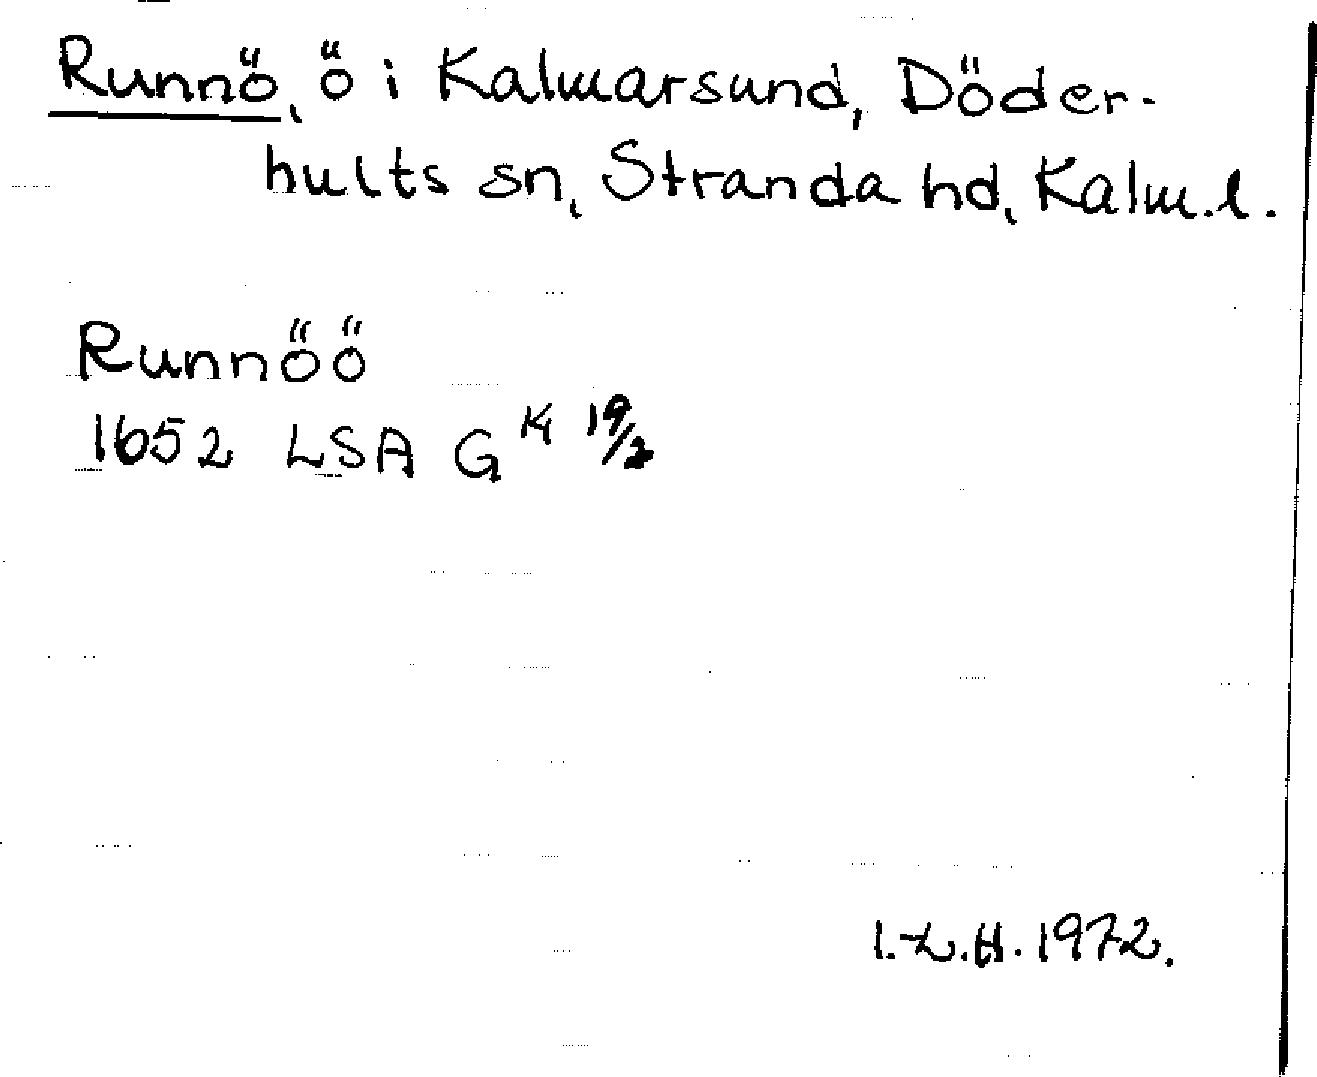 Runnö, ö i Kalmarsund, Döder-
hults sn, Stranda hd, Kalm.l.
Runnöö
1652 LSA G K 19/2
I.-L.H. 1972.